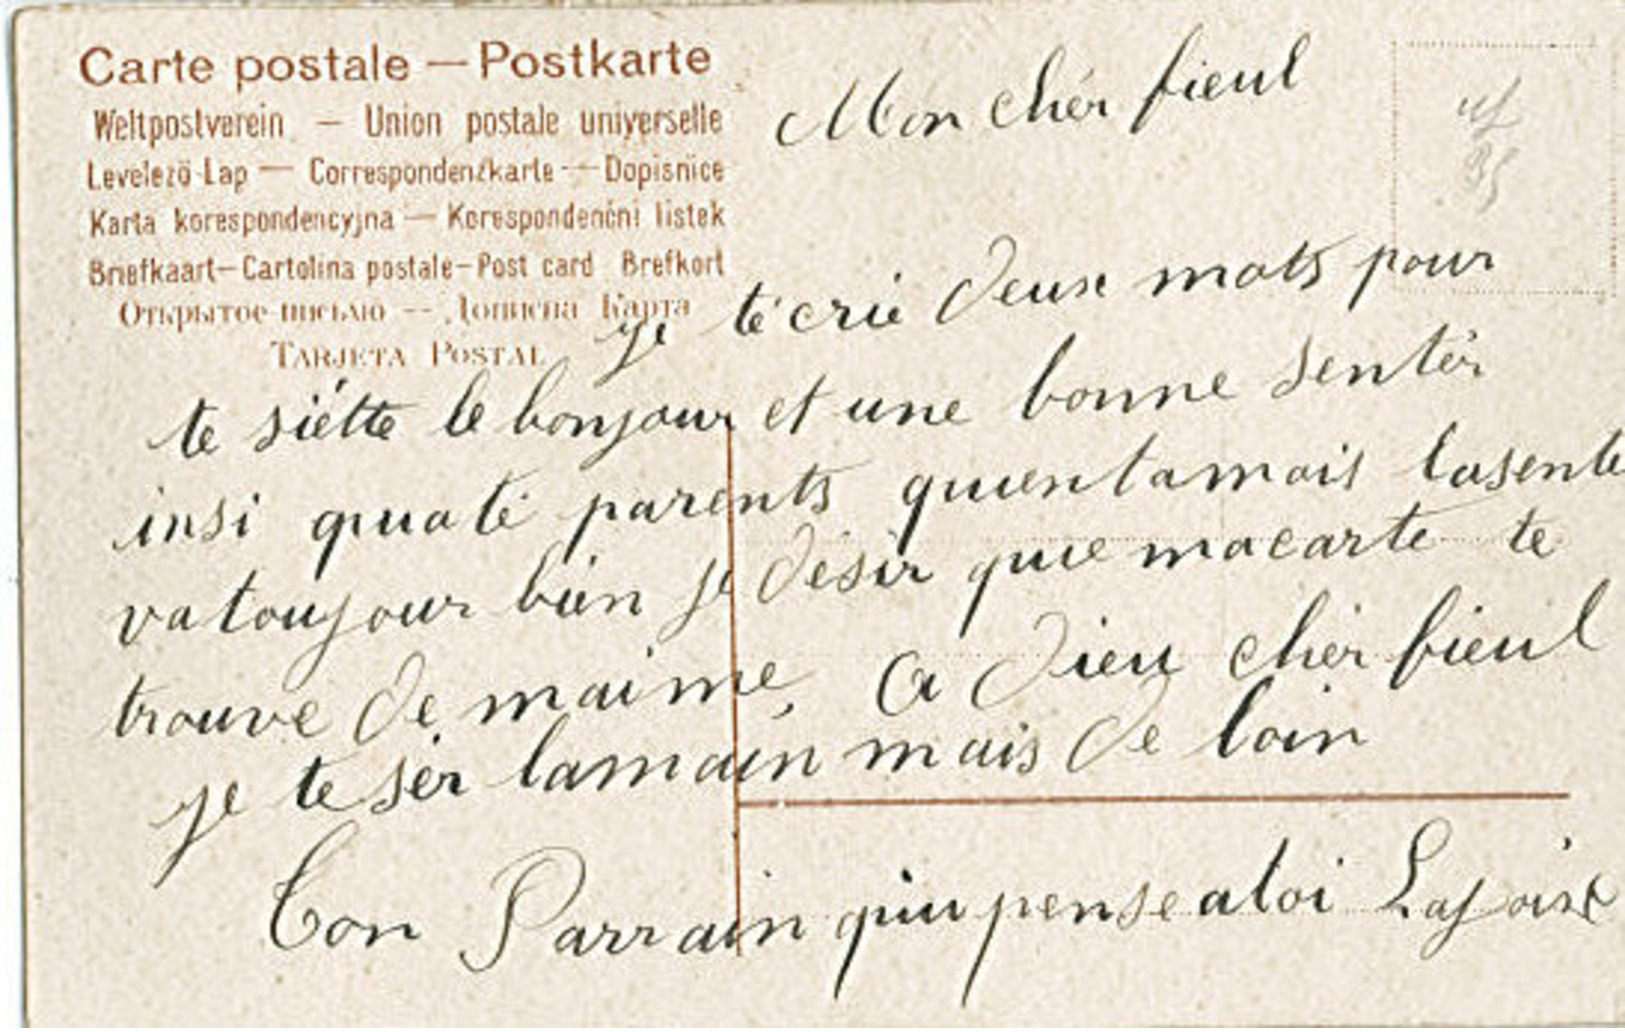 Carte postale — Postkarte
Weltpostverein — Union postale universelle
Levelező-Lap — Correspondenzkarte — Dopisnice
Karta korespondencyjna — Korespondenční listek
Briefkaart — Cartolina postale — Post card Brefkort
Открытое письмо — Дописна Карта
TARJETA POSTAL
Mon chér fieul
Je té crié deux mots pour
te siétte le bonjour et une bonne sentér
insi qua té parents quientamais lasente
va toujour bién je désir que macarte te
trouve de maime, a Dieu chér fieul
je te sér lamain mais de loin
Ton Parrain qui pense a toi